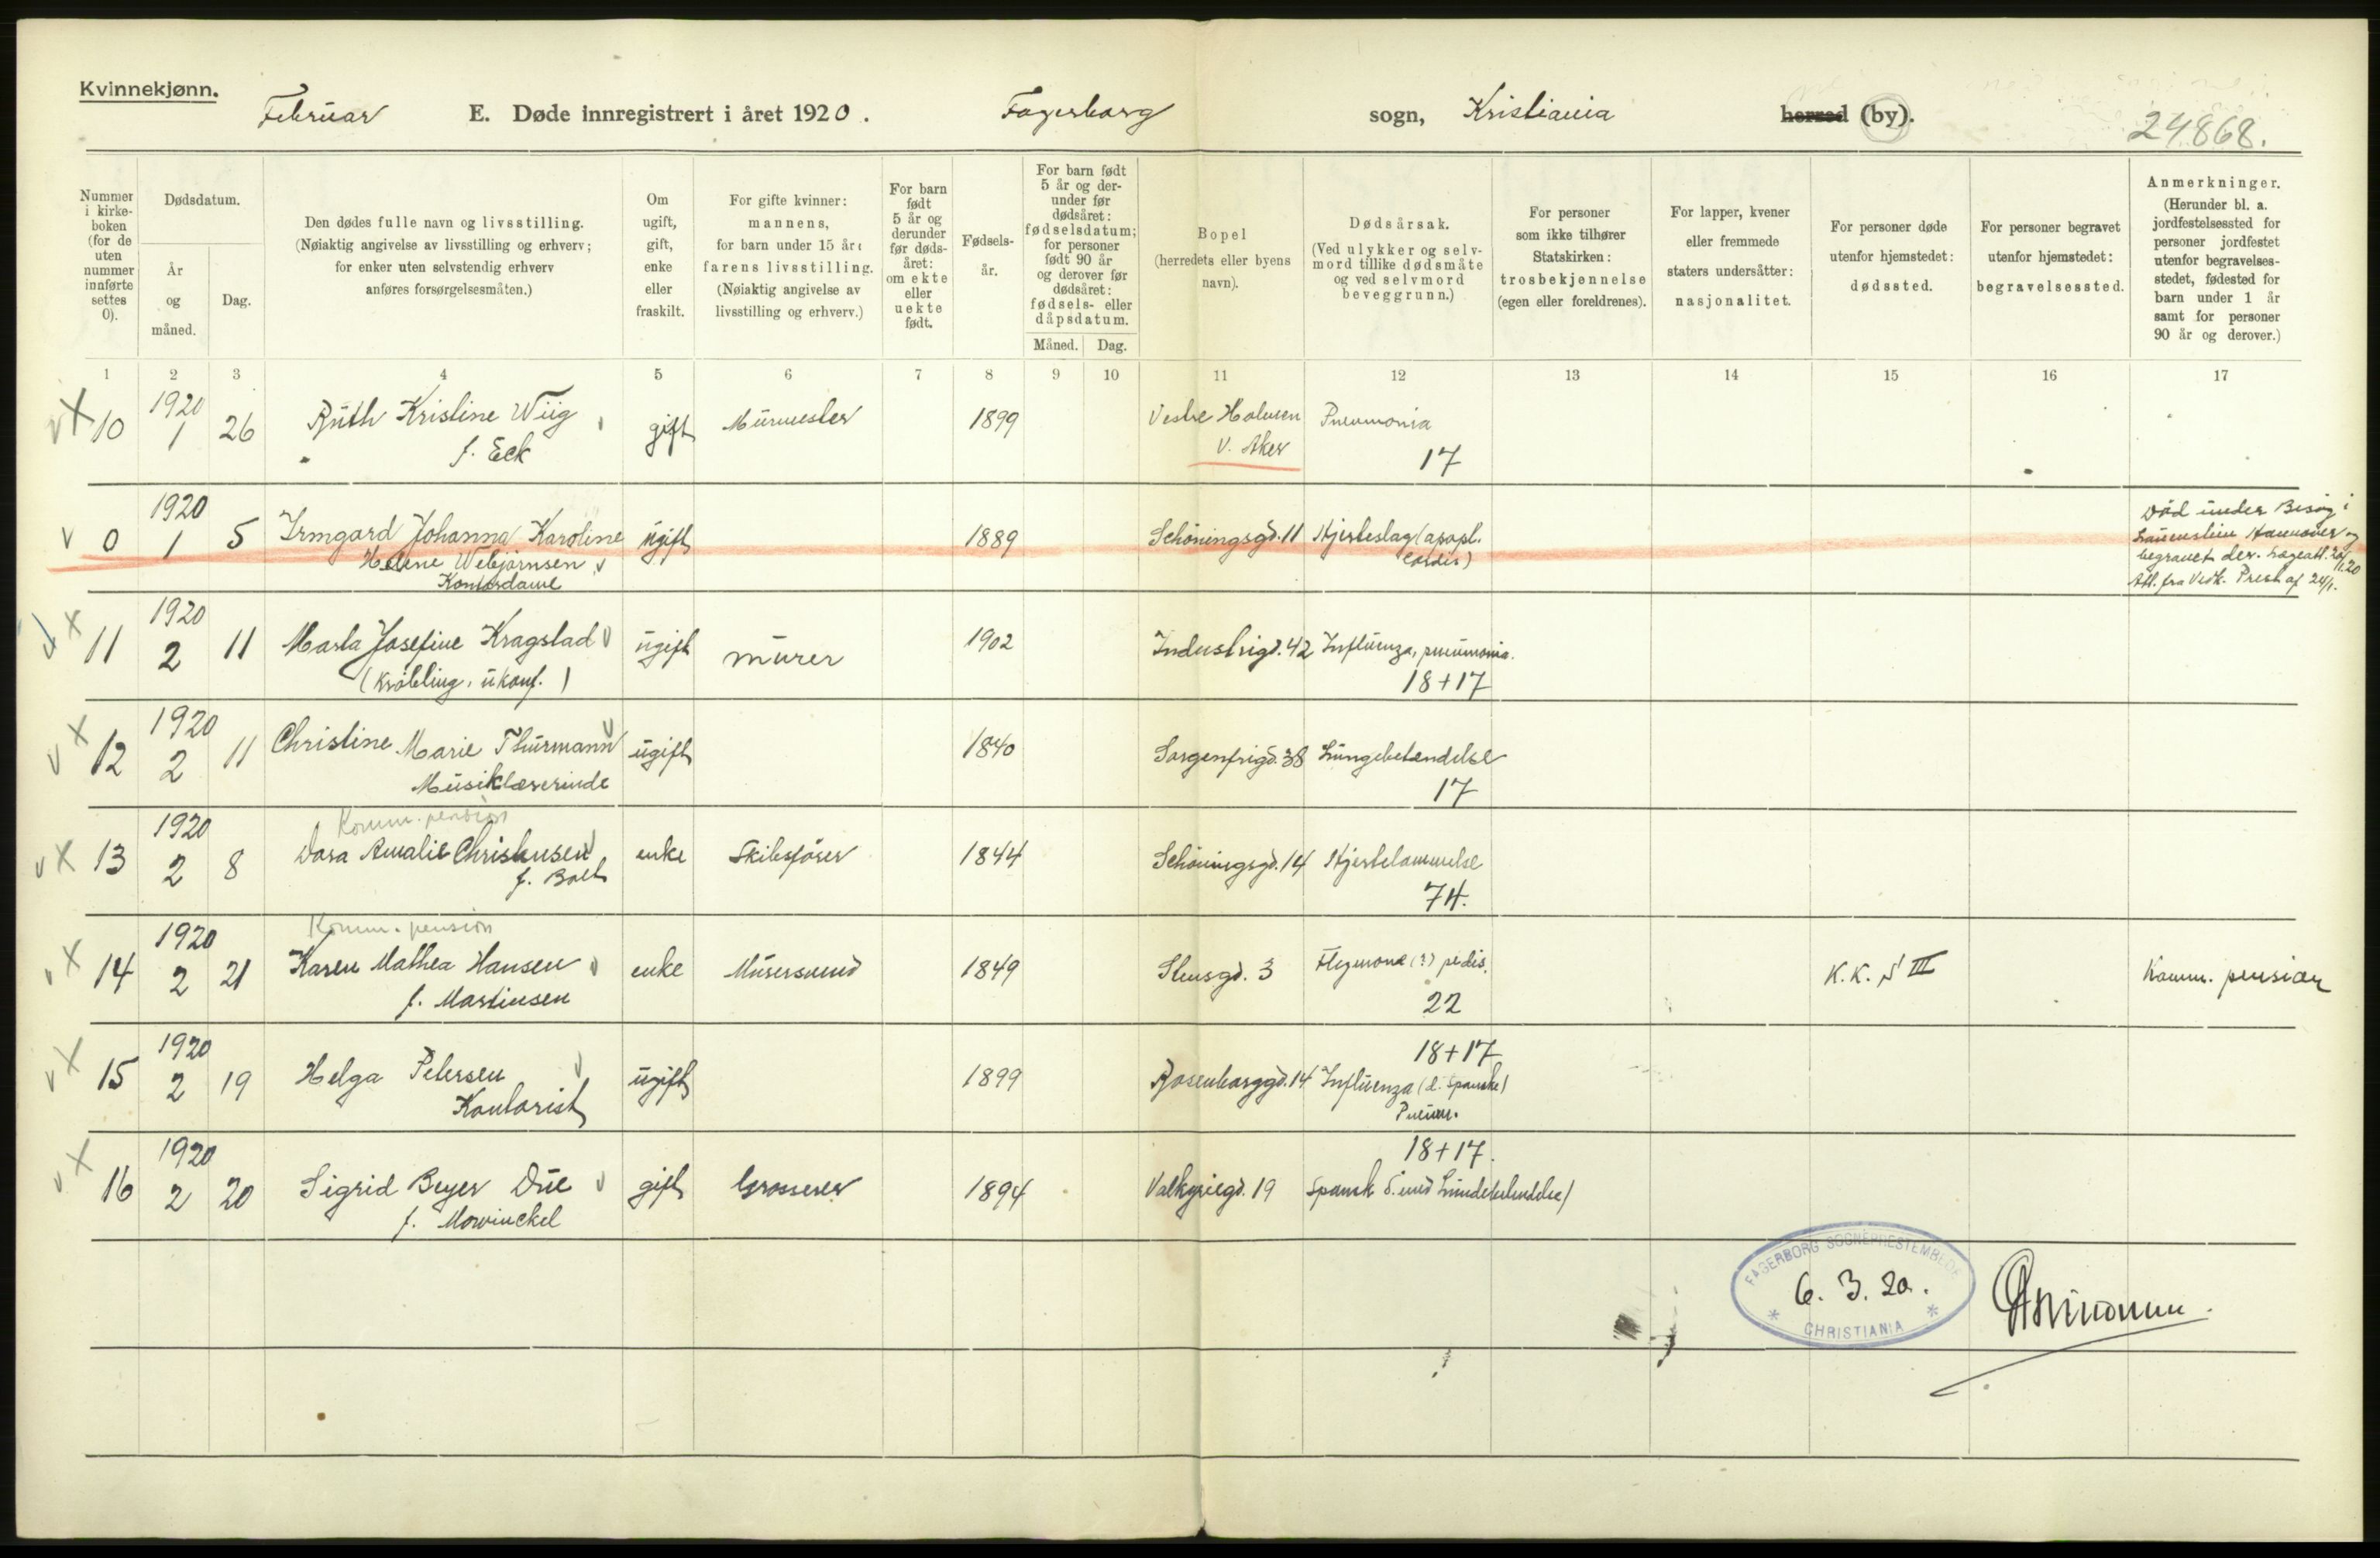 Kvinnekjønn.
Februar E. Døde innregistrert i året 1920. Fagerborg sogn, Kristiania herred (by).
24868.
Nummer i kirke-boken (for de uten nummer innførte settes 0).
Dødsdatum.
År og måned.
Dag.
Den dødes fulle navn og livsstilling.
(Nøiaktig angivelse av livsstilling og erhverv;
for enker uten selvstendig erhverv
anføres forsørgelsesmåten.)
Om ugift, gift, enke eller fraskilt.
For gifte kvinner:
mannens,
for barn under 15 år:
farens livsstilling.
(Nøiaktig angivelse av
livsstilling og erhverv.)
For barn født 5 år og derunder før døds-året: om ekte eller uekte født.
Fødsels-år.
For barn født 5 år og der-under før dødsåret: fødselsdatum; for personer født 90 år og derover før dødsåret: fødsels- eller dåpsdatum.
Måned. Dag.
Bopel
(herredets eller byens navn).
Dødsårsak.
(Ved ulykker og selv-
mord tillike dødsmåte
og ved selvmord
beveggrunn.)
For personer
som ikke tilhører
Statskirken:
trosbekjennelse
(egen eller foreldrenes).
For lapper, kvener
eller fremmede
staters undersåtter:
nasjonalitet.
For personer døde
utenfor hjemstedet:
dødssted.
For personer begravet
utenfor hjemstedet:
begravelsessted.
Anmerkninger.
(Herunder bl. a.
jordfestelsessted for
personer jordfestet
utenfor begravelses-
stedet, fødested for
barn under 1 år
samt for personer
90 år og derover.)
1 2 3 4 5 6 7 8 9 10 11 12 13 14 15 16 17
v X 10 1920 1 26 Ruth Kristine Wiig gift Murmester 1899 Vestre Holmen Pneumonia
f. Eck V. Aker 17
v 0 1920 1 5 Irmgard Johanna Karoline ugift 1889 Schöningsgd. 11 Hjerteslag (apopl. cordis)
Helene Webjörnsen v
Kontordame
Död under Besøg i
Lauenstein Hannover og
begravet der. Lægeatt. 20/1.20
Att. fra Vedk. Prest af 24/1.
v X 11 1920 2 11 Marta Josefine Kragstad v ugift murer 1902 Industrigd. 42 Influenza, pneumonia.
(Krøbling, ukonf.) 18+17
v X 12 1920 2 11 Christine Marie Thurmann v ugift 1840 Sorgenfrigd. 38 Lungebetændelse
Musiklærerinde 17
Komm. pension
v X 13 1920 2 8 Dora Amalie Christensen v enke Skibsförer 1844 Schöningsgd. 14 Hjertelammelse
f. Bolt 74.
Komm. pension
v X 14 1920 2 21 Karen Mathea Hansen v enke Murersvend 1849 Stensgd. 3 Flegmone (?) pedis. K.K. S III Komm. pension
f. Martinsen 22
18+17
v X 15 1920 2 19 Helga Petersen v ugift 1899 Rosenborggd. 14 Influenza (d. spanske)
Kontorist Pneum.
18+17.
v X 16 1920 2 20 Sigrid Beyer Due v gift Grosserer 1894 Valkyriegd. 19 Spansk S. med
f. Mowinckel
FAGERBORG SOGNEPRESTEMBEDE
6. 3. 20.
* CHRISTIANIA *